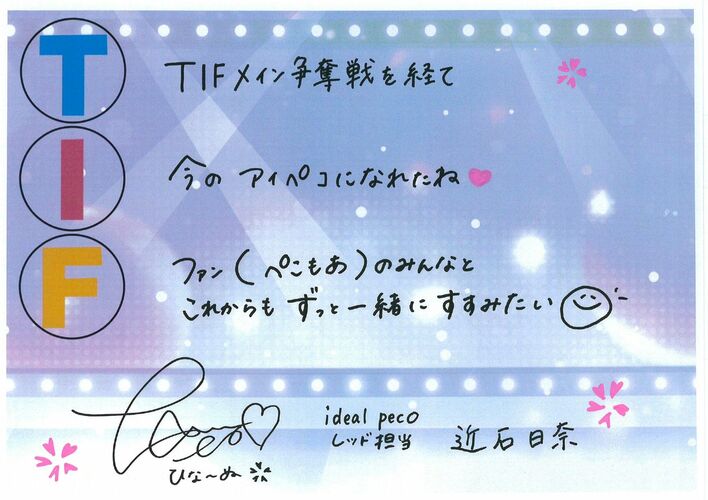 T
TIFメイン争奪戦を経て
I
今の アイペコになれたね
F
ファン(ぺこもあ)のみんなと
これからも ずっと一緒にすすみたい
ideal peco
レッド担当 近石日奈
ひな〜ぬ